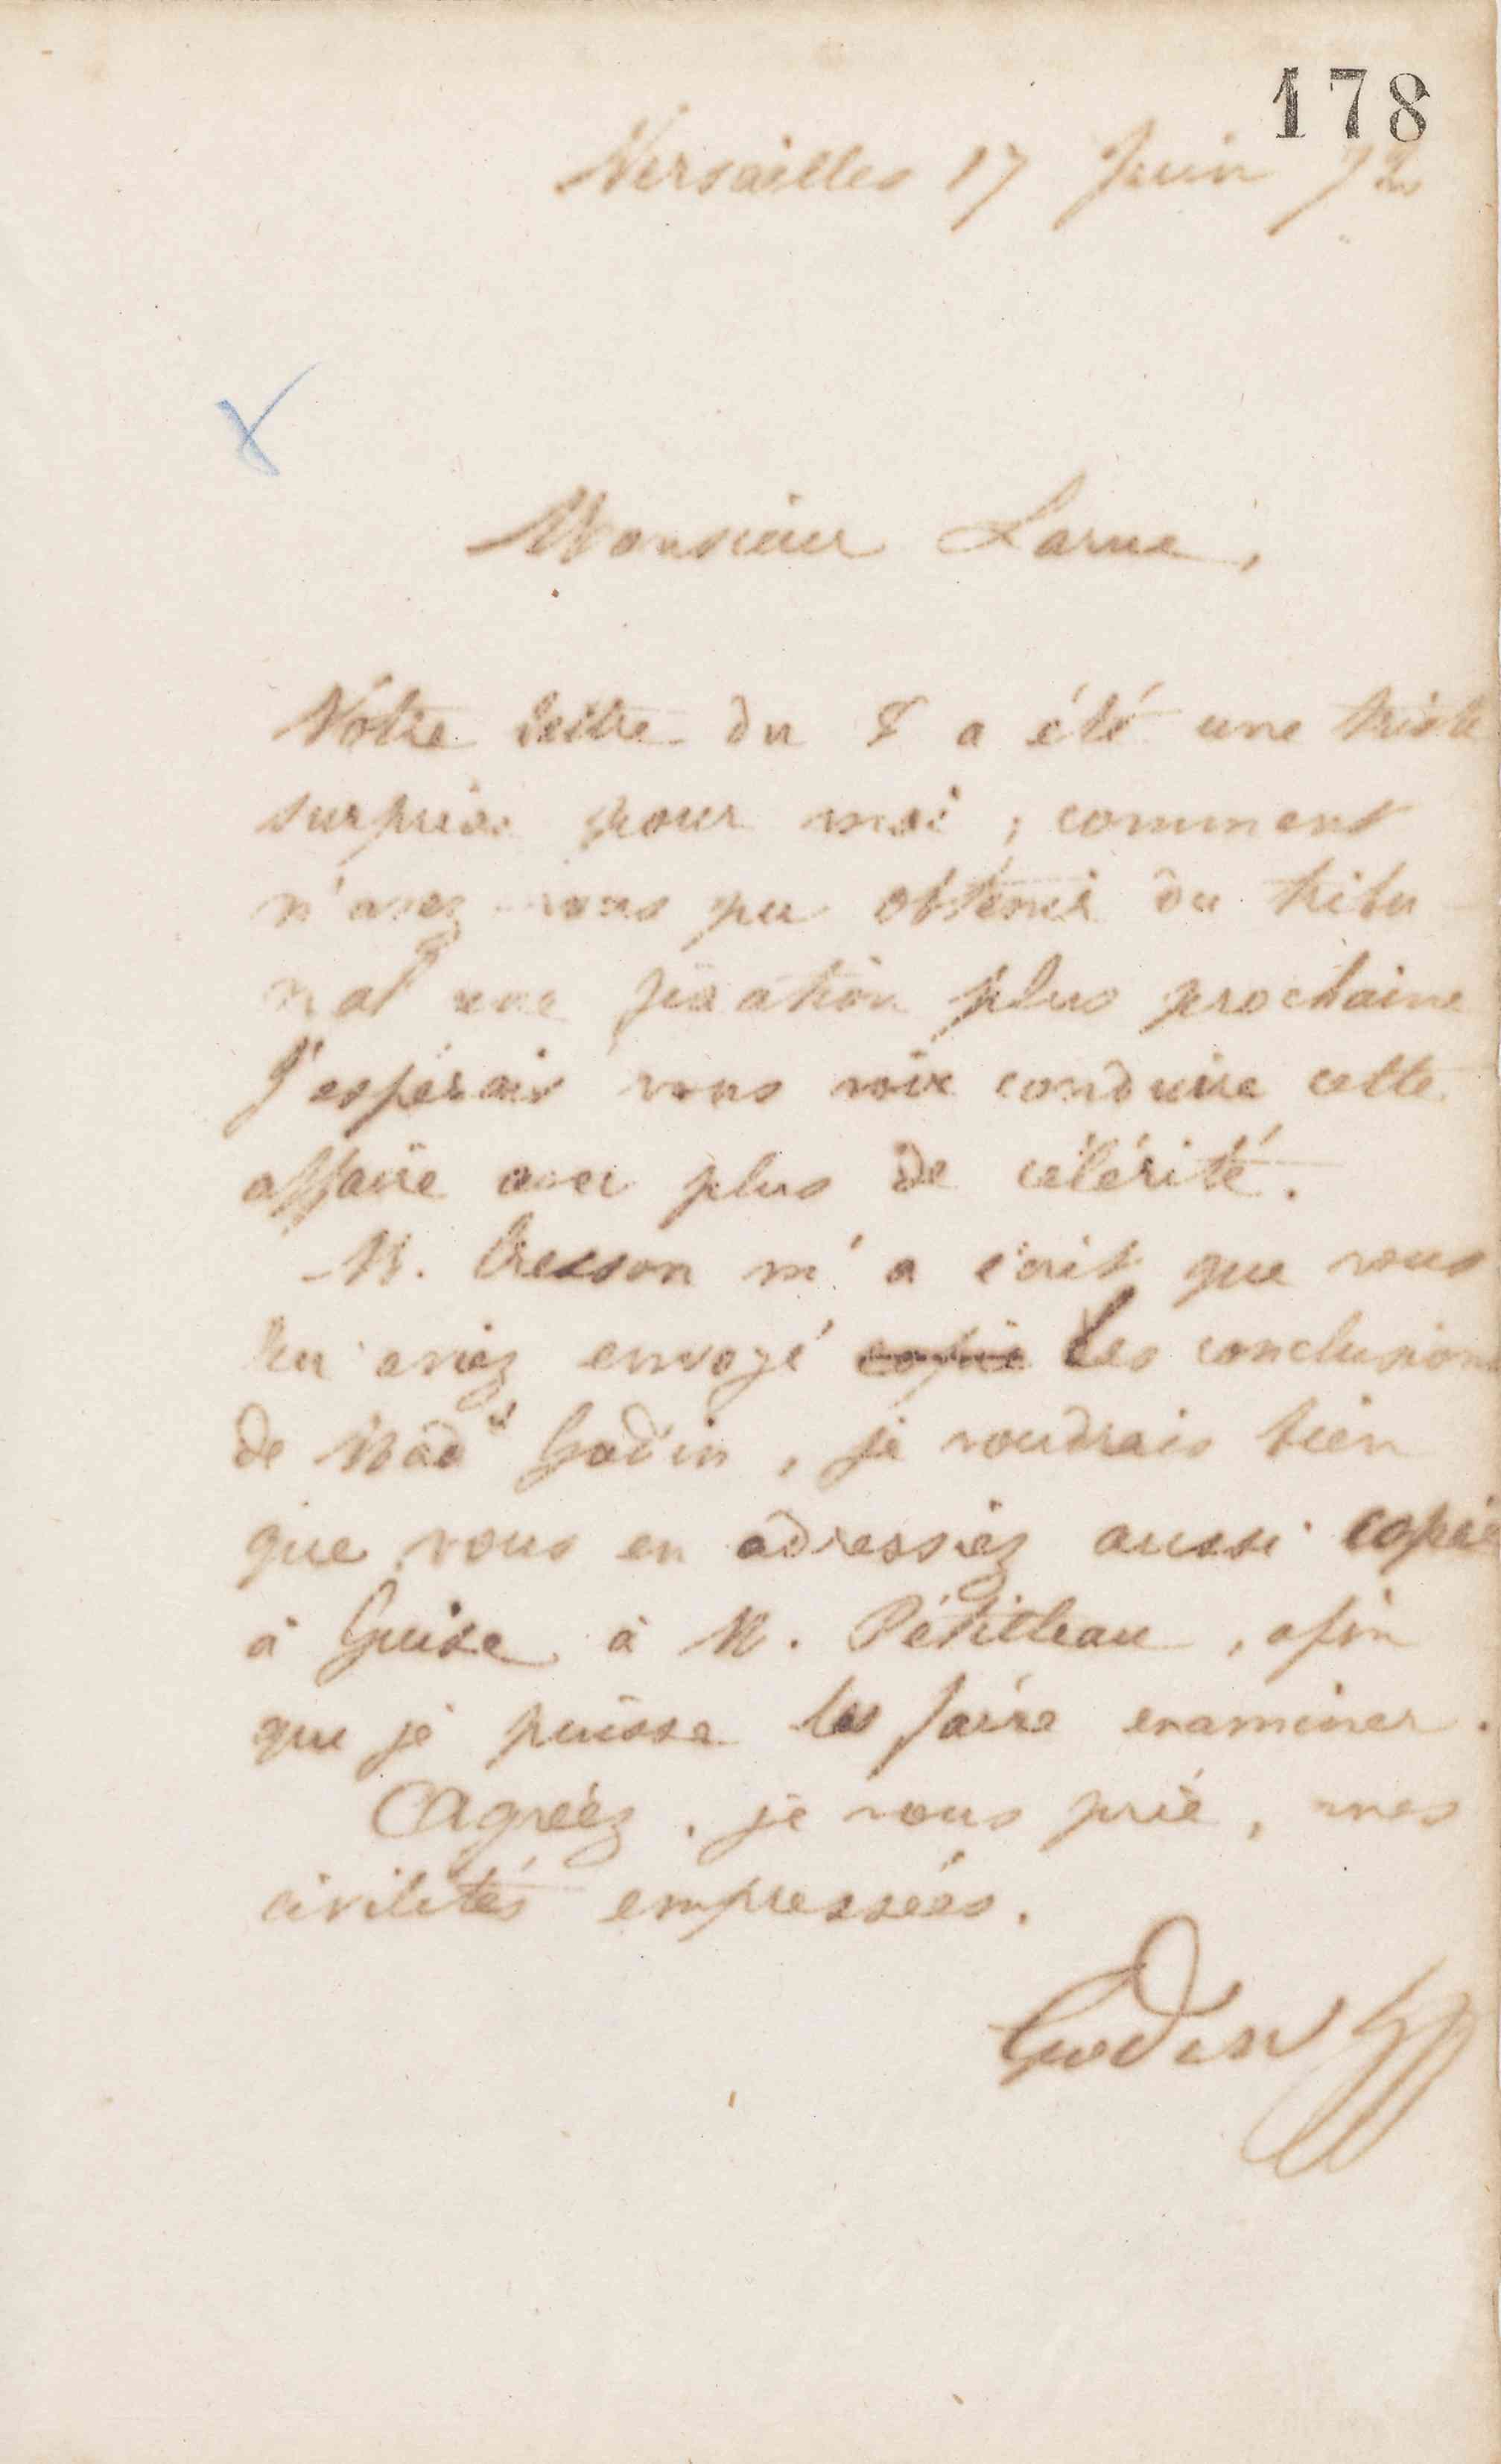 178
Versailles 17 Juin 72
Monsieur Larue,
Votre lettre du 8 a été une triste
surprise pour moi ; comment
n'avez-vous pu obtenir du tribu-
nal une fixation plus prochaine
J'espérais vous voir conduire cette
affaire avec plus de célérité.
M. Cresson m'a écrit que vous
lui aviez envoyé copie les conclusions
de Mad^e Godin, je voudrais bien
que vous en adressiez aussi copie
à Guise à M. Pétilleau, afin
que je puisse les faire examiner.
Agréez, je vous prie, mes
civilités empressées.
Godin